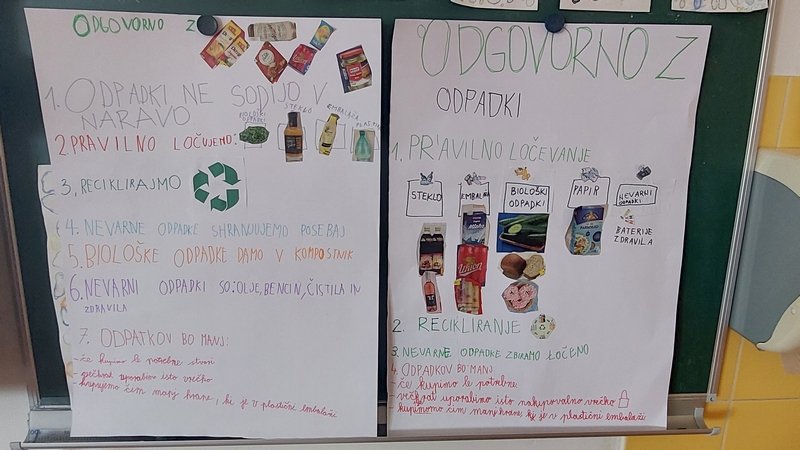 ODGOVORNO Z
1. ODPADKI NE SODIJO V
NARAVO.
BIOLOŠKI
ODPADKI
STEKLO
EMBALAŽA
2. PRAVILNO LOČUJEMO:
3. RECIKLIRAJMO
4. NEVARNE ODPADKE SHRANJUJEMO POSEBAJ
5. BIOLOŠKE ODPADKE DAMO V KOMPOSTNIK
6. NEVARNI ODPADKI SO: OLJE, BENCIN, ČISTILA IN
ZDRAVILA
7. ODPATKOV BO MANJ:
- če kupimo le potrebne stvari
- večkrat uporabimo isto vrečko
- kupujemo čim manj hrane, ki je v plastični embalaži
ODGOVORNO Z
ODPADKI
1. PRAVILNO LOČEVANJE
STEKLO
EMBALAŽA
BIOLOŠKI
ODPADKI
PAPIR
NEVARNI
ODPADKI
BATERIJE
ZDRAVILA
Union
2. RECIKLIRANJE
3. NEVARNE ODPADKE ZBIRAMO LOČENO
4. ODPADKOV BO MANJ
- če kupimo le potrbne
- večkrat uporabimo isto nakupovalno vrečko
- kupimo čim manj hrane, kij je v plastični embalaži